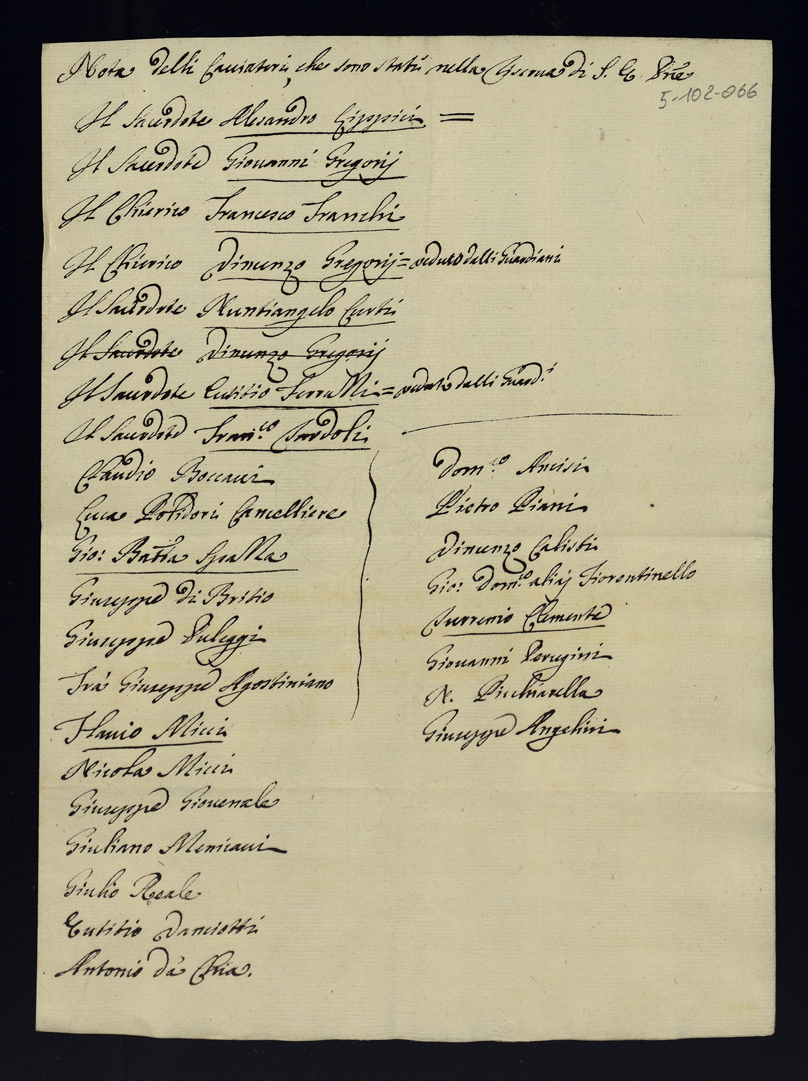 Nota delli Cacciatori, che sono stati nella Riserva di S. E. Prñe
5-102-066
Il Sacerdote Alesandro Cippici =
Il Sacerdote Giovanni Gregorij
Il Chierico Francesco Franchi
Il Chierico Vincenzo Gregorij = veduto dalli Guardiani
Il Sacerdote Nuntiangelo Curti
Il Sacerdote Vincenzo Gregorij
Il Sacerdote Eutitio Ferralli = veduto dalli Guard.i
Il Sacerdote Fran.co Sardoli
Claudio Boccacci
Luca Polidori Cancelliere
Gio: Batta Spalla
Giuseppe di Britio
Giuseppe Puleggi
Frà Giuseppe Agostiniano
Flavio Micci
Nicola Micci
Giuseppe Giovenale
Giuliano Menicacci
Giulio Reale
Eutitio Vanciotti
Antonio dà Chia.
Dom.co Ancisi
Pietro Piani
Vincenzo Calisti
Gio: Dom.co alias Fiorentinello
Clemente
Giovanni Perugini
N. Picchiarella
Giuseppe Angelini